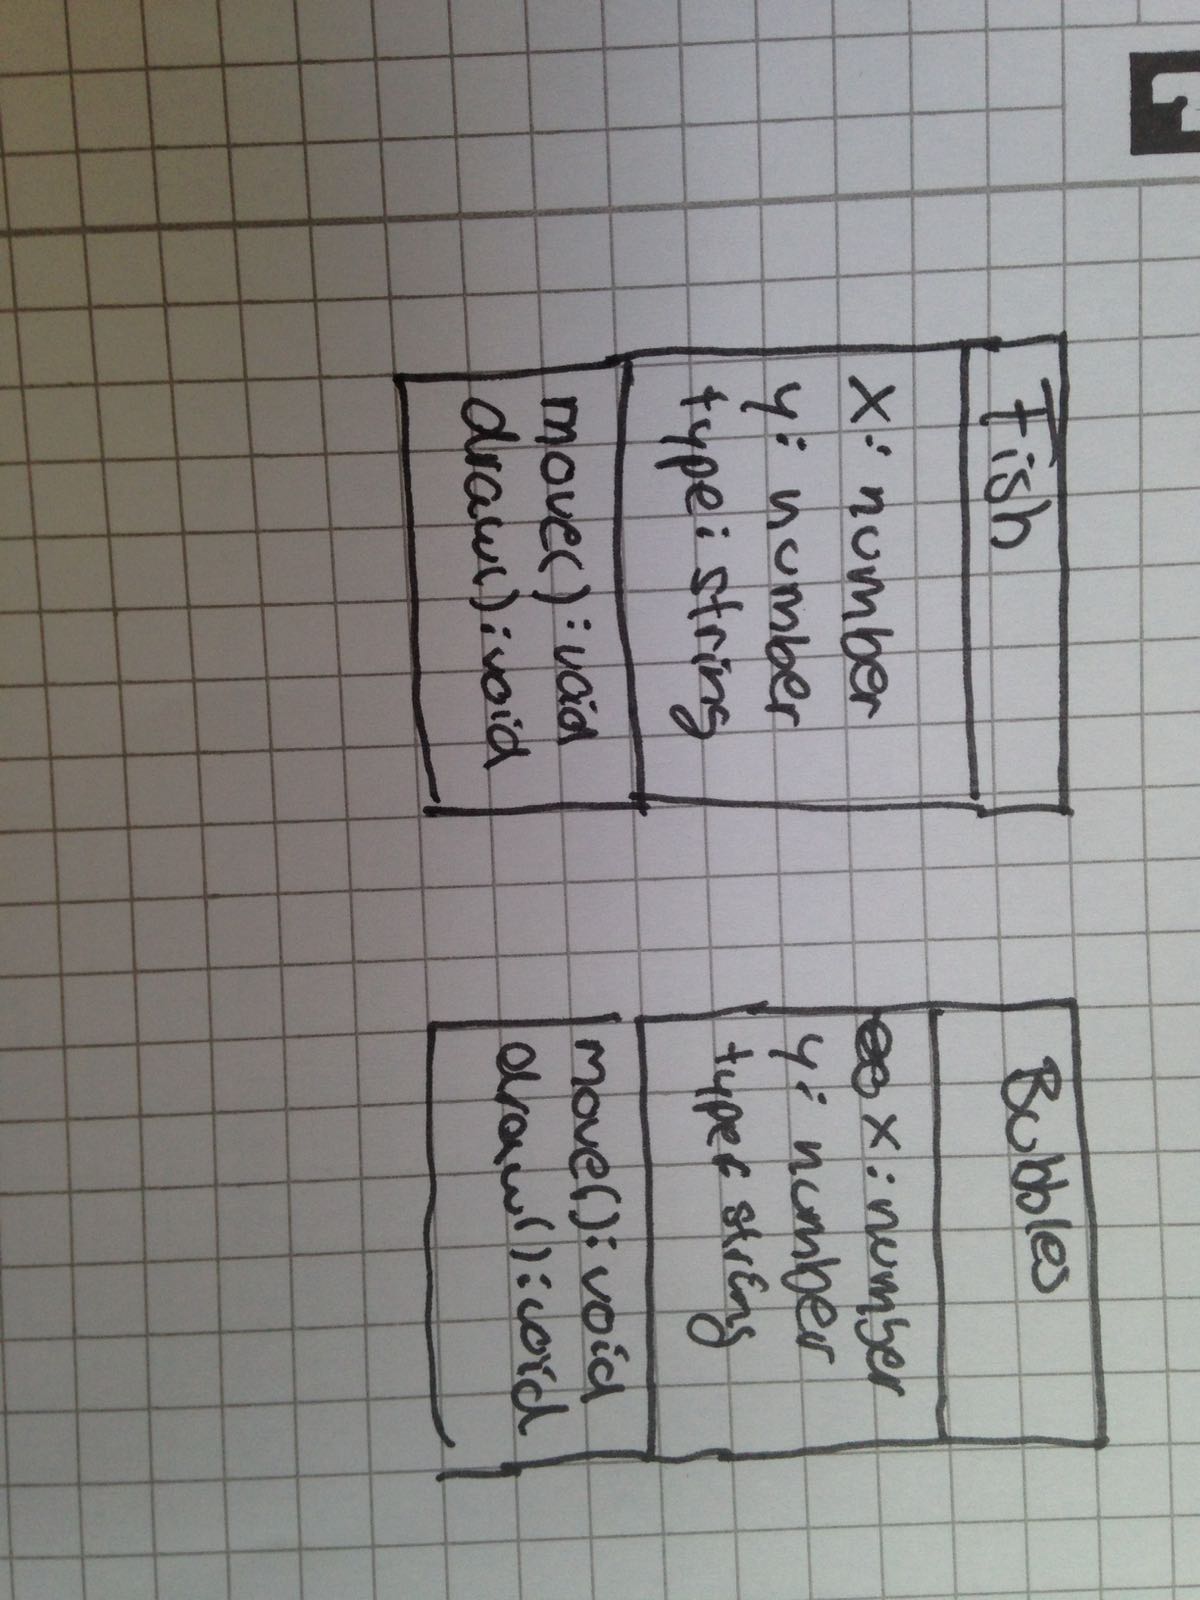 Fish
x: number
y: number
type: string
move(): void
draw(): void
Bubbles
x: number
y: number
type: string
move(): void
draw(): void